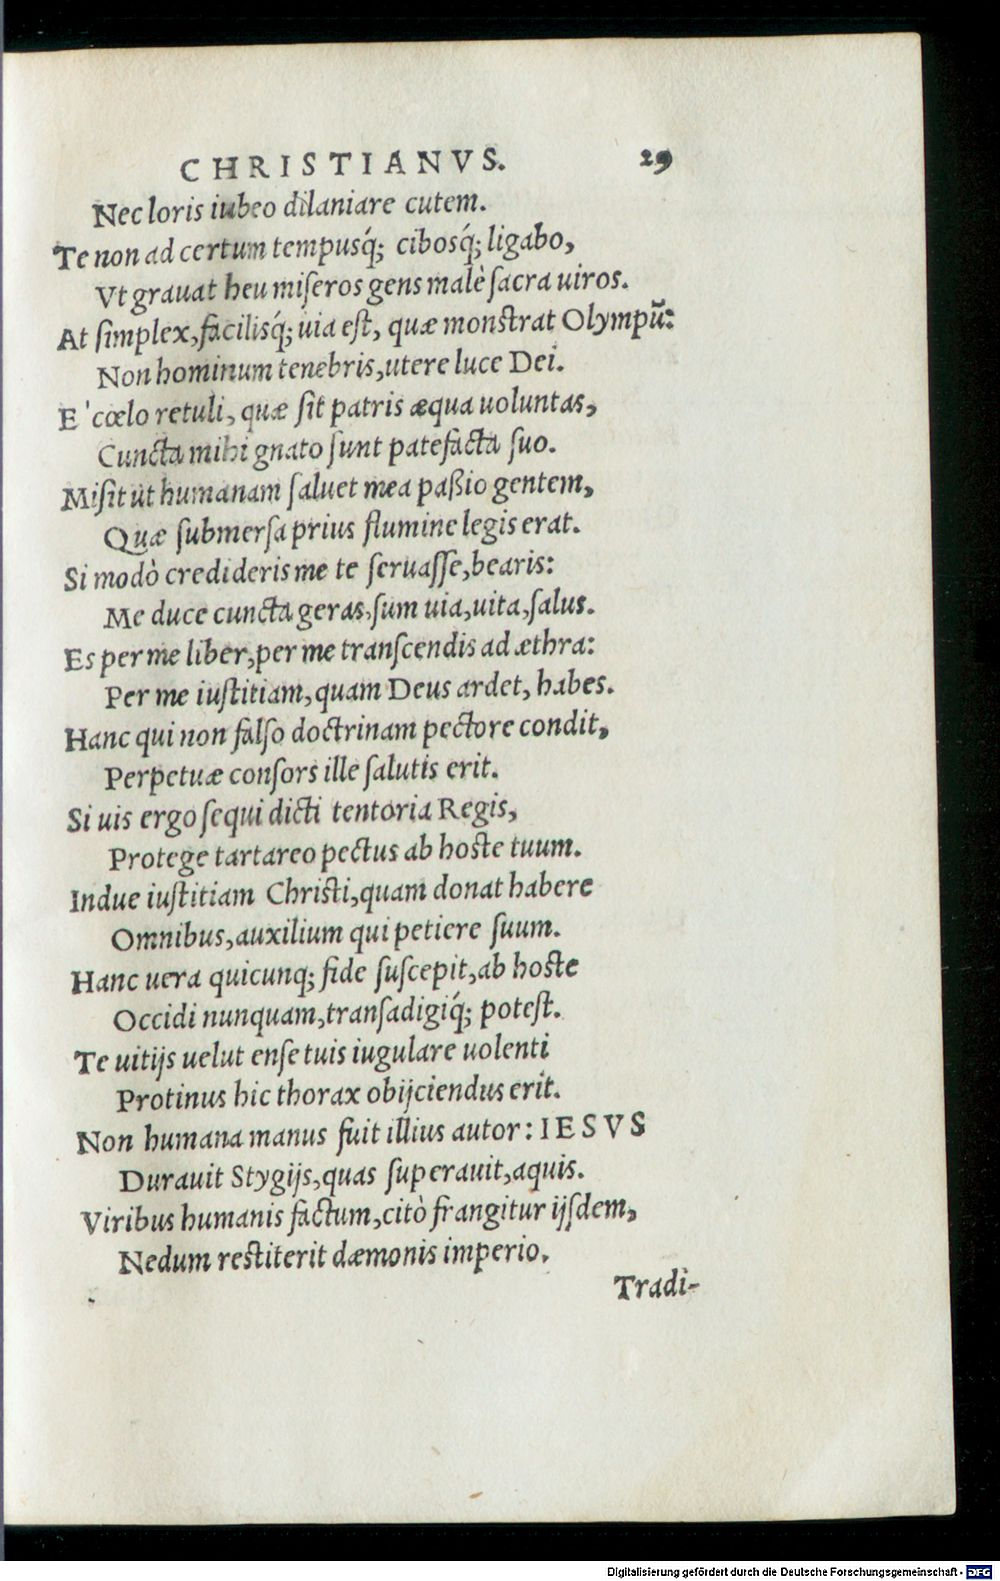 CHRISTIANVS. 29
Nec loris iubeo dilaniare cutem.
Te non ad certum tempusq́; cibosq́; ligabo,
Vt grauat heu miseros gens malè sacra uiros.
At simplex, facilisq́; uia est, quæ monstrat Olympũ:
Non hominum tenebris, utere luce Dei.
E' cœlo retuli, quæ sit patris æqua uoluntas,
Cuncta mihi gnato sunt patefacta suo.
Misit ut humanam saluet mea paßio gentem,
Quæ submersa prius flumine legis erat.
Si modò credideris me te seruasse, bearis:
Me duce cuncta geras, sum uia, uita, salus.
Es per me liber, per me transcendis ad æthra:
Per me iustitiam, quam Deus ardet, habes.
Hanc qui non falso doctrinam pectore condit,
Perpetuæ consors ille salutis erit.
Si uis ergo sequi dicti tentoria Regis,
Protege tartareo pectus ab hoste tuum.
Indue iustitiam Christi, quam donat habere
Omnibus, auxilium qui petiere suum.
Hanc uera quicunq; fide suscepit, ab hoste
Occidi nunquam, transadigiq́; potest.
Te uitijs uelut ense tuis iugulare uolenti
Protinus hic thorax obijciendus erit.
Non humana manus fuit illius autor: IESVS
Durauit Stygijs, quas superauit, aquis.
Viribus humanis factum, citò frangitur ijsdem,
Nedum restiterit dæmonis imperio.
Tradi-
Digitalisierung gefördert durch die Deutsche Forschungsgemeinschaft - DFG